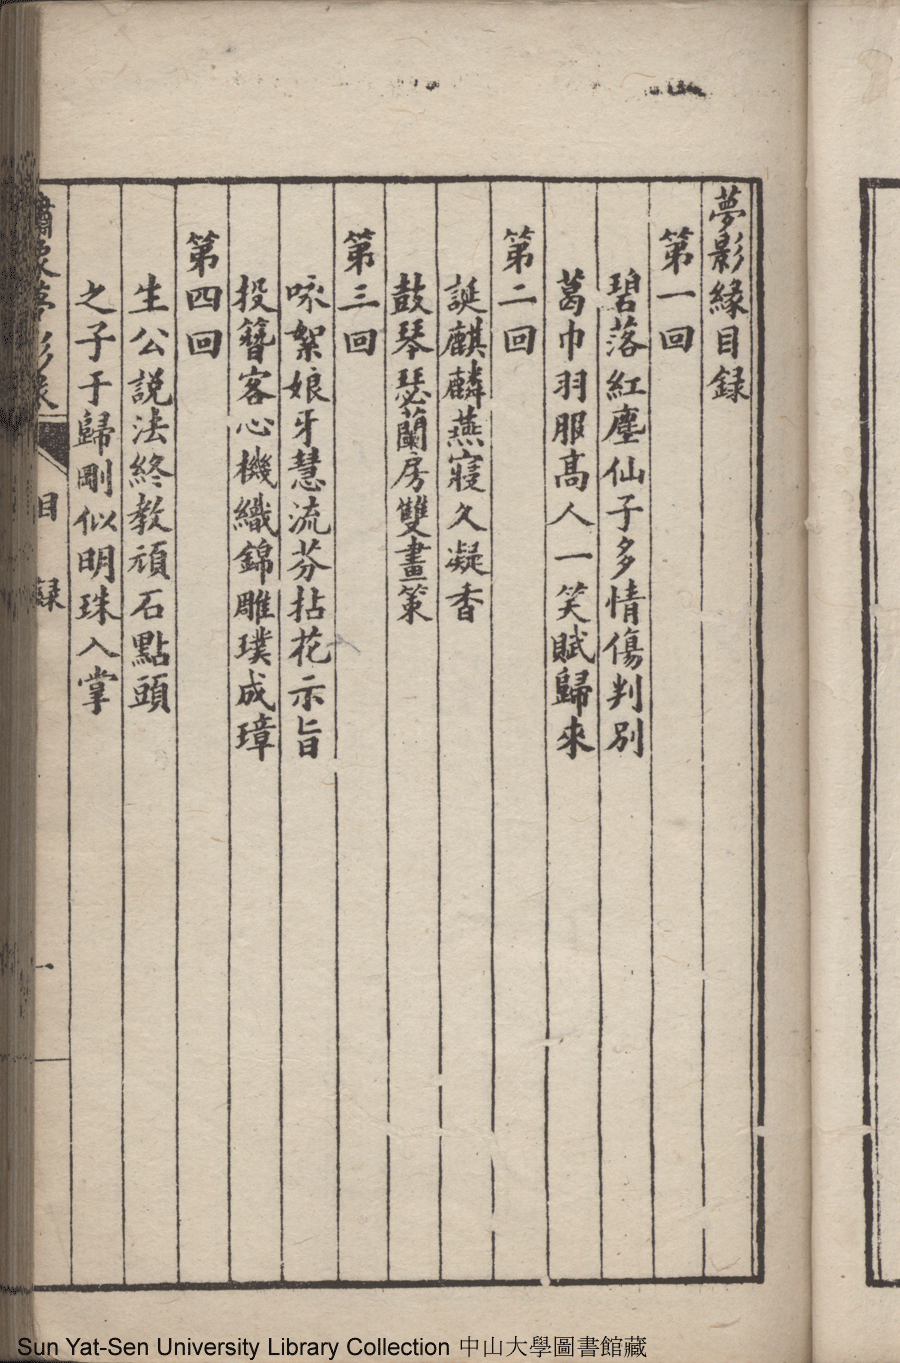 夢影緣目録
第一回
碧落紅塵仙子多情傷判別
葛巾羽服高人一笑賦歸來
第二回
誕麒麟燕寢久凝香
鼓琴瑟蘭房雙畫策
第三回
咏絮娘牙慧流芬拈花示旨
投簪客心機織錦雕璞成璋
第四回
生公説法終教頑石點頭
之子于歸剛似明珠入掌
夢影緣
目録
一
Sun Yat-Sen University Library Collection 中山大學圖書館藏